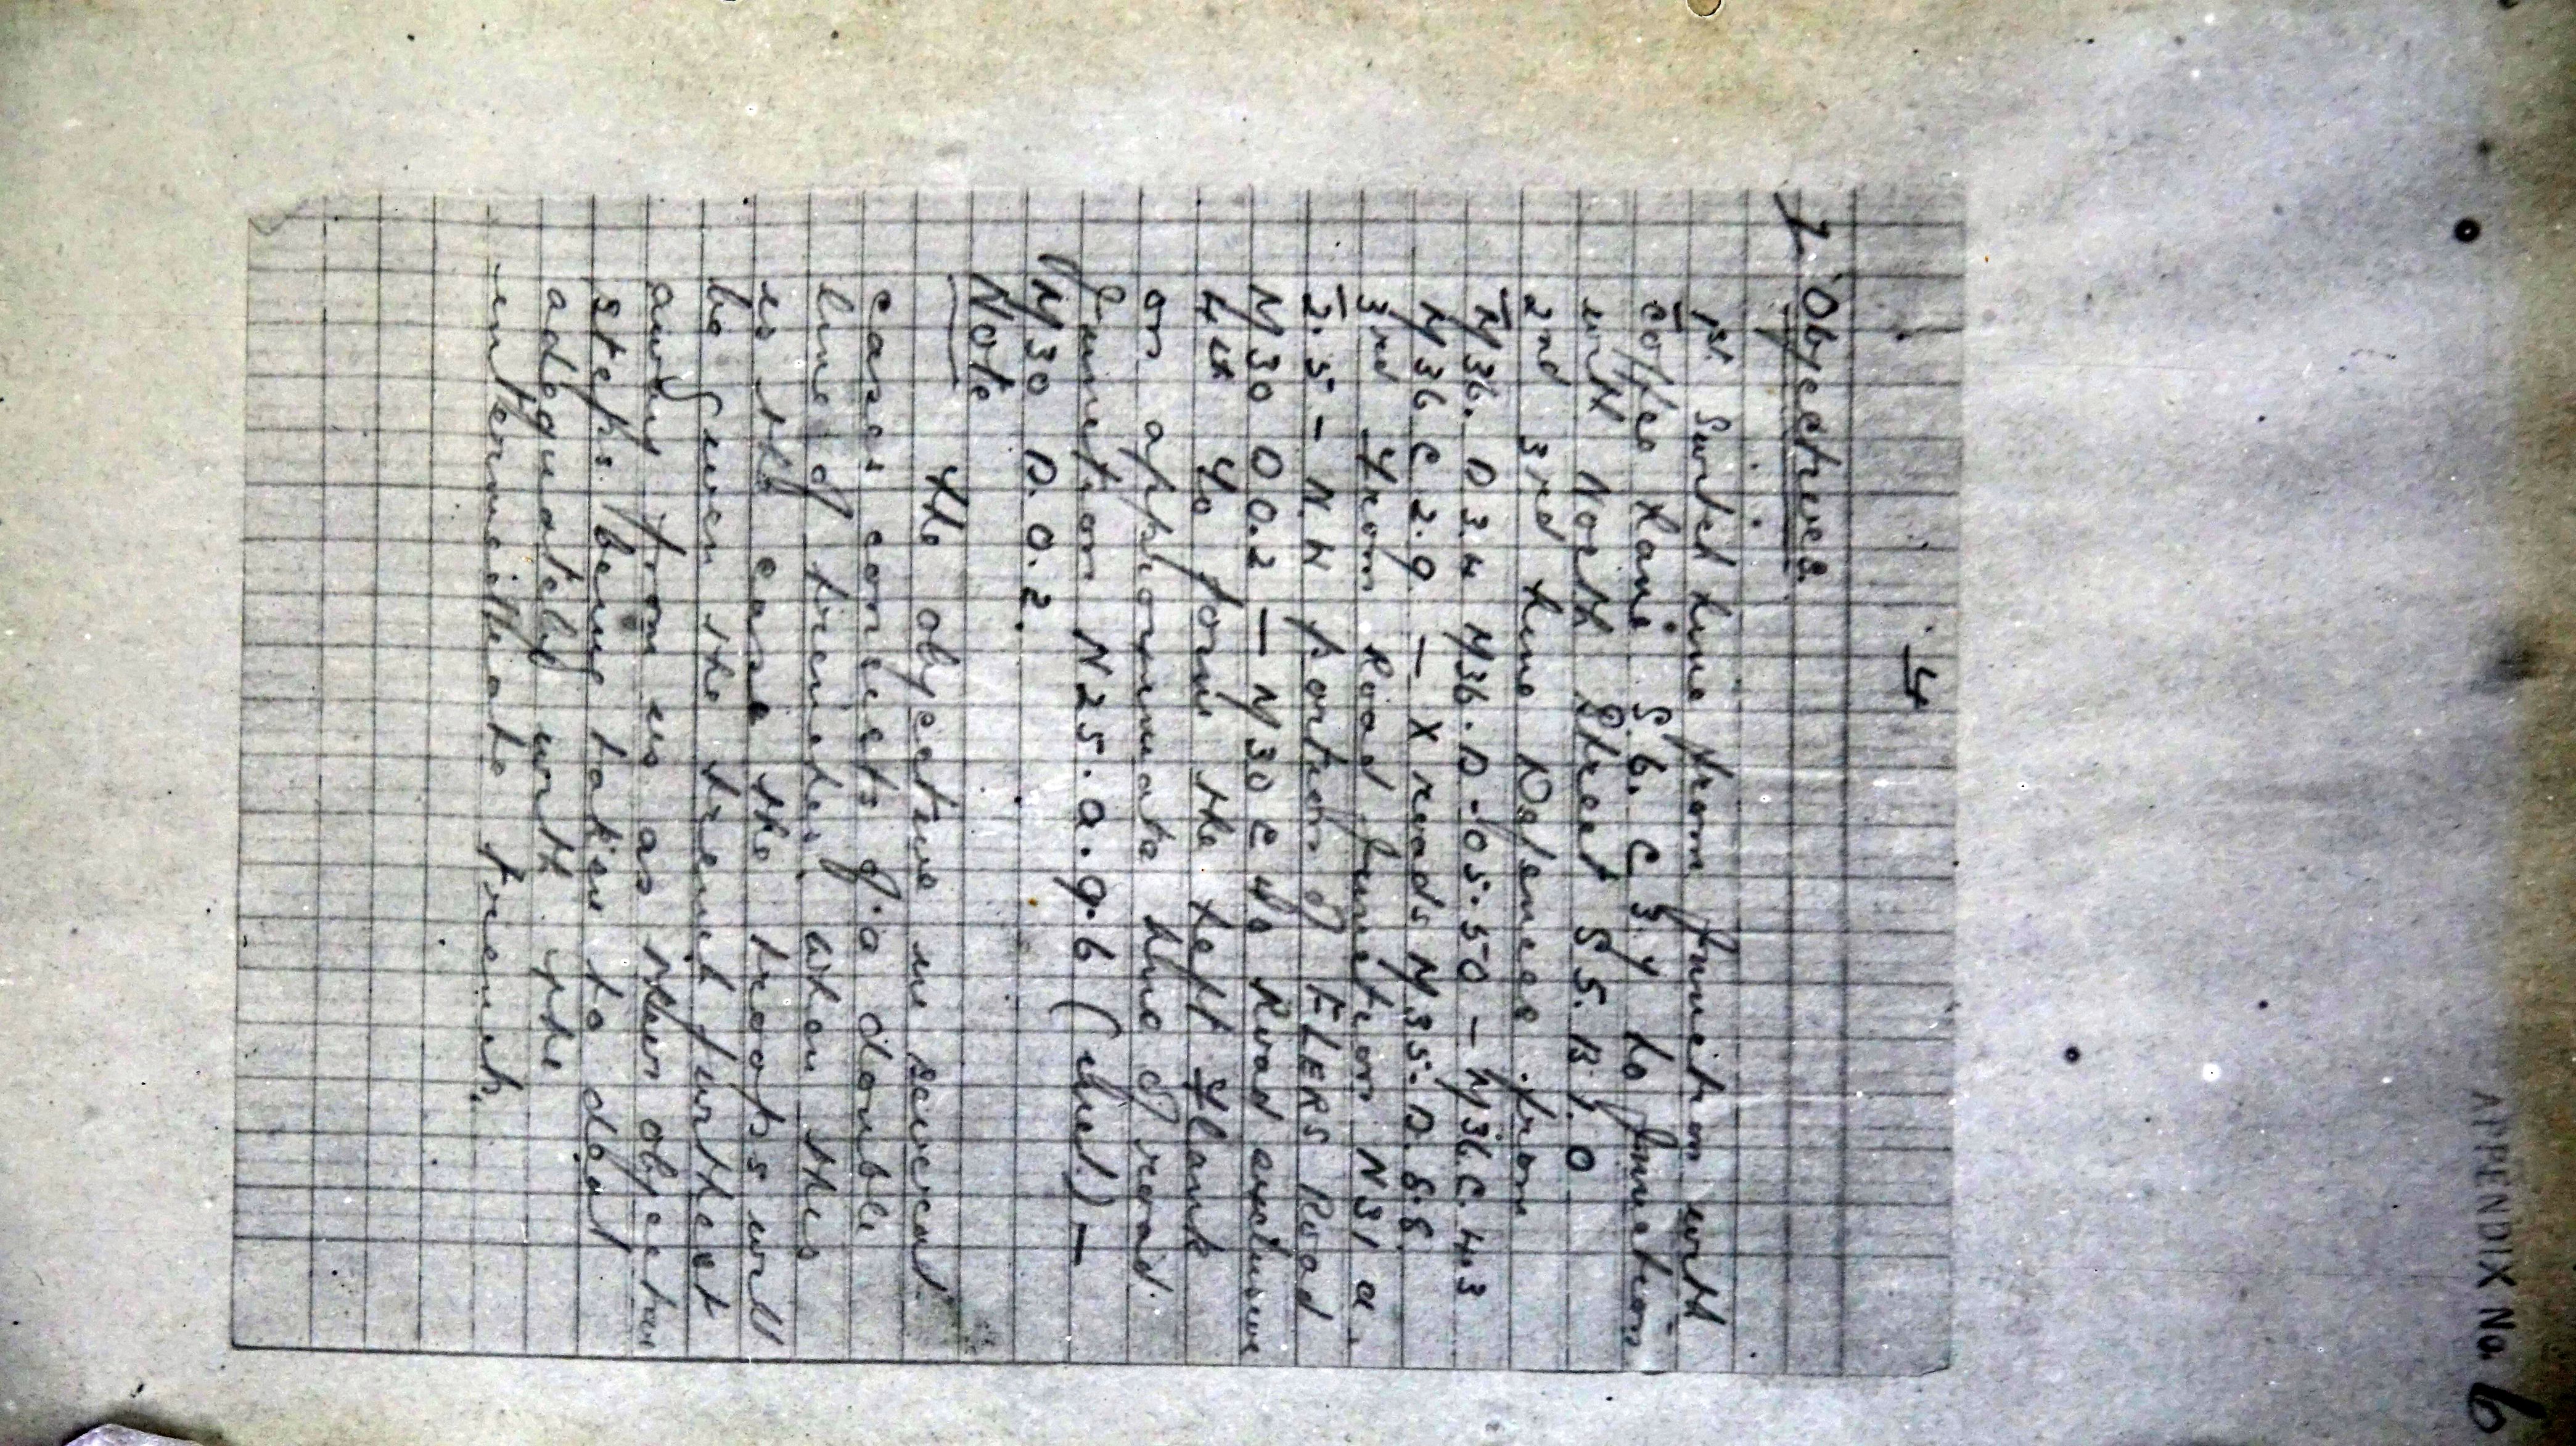 APPENDIX No. 6
4
7. Objectives.
1st Switch Line from junction with
Coffee Lane S.6. C 3.7 to junction
with North Street S 5. B 7. 0
2nd 3rd Line Defences from
N36. D 3.4 N36. D. 05.50 - N36.C. 4.3
N36 C 2.9 - X roads N.35. D. 8.8.
3rd From Road junction N31 a.
2.5 - N.W portion of FLERS Road
N30 D 0.2 - N30 C Road exclusive
4th To form the left Flank
on approximate line of road.
Junction N25. a. 9.6 (incl) -
N30 D. 0. 2.
Note
The objective in several
cases consists of a double
line of trenches. When this
is the case the troops will
be given the trench furthest
away from us as their objective
steps being taken to deal
adequately with the
intermediate trench.